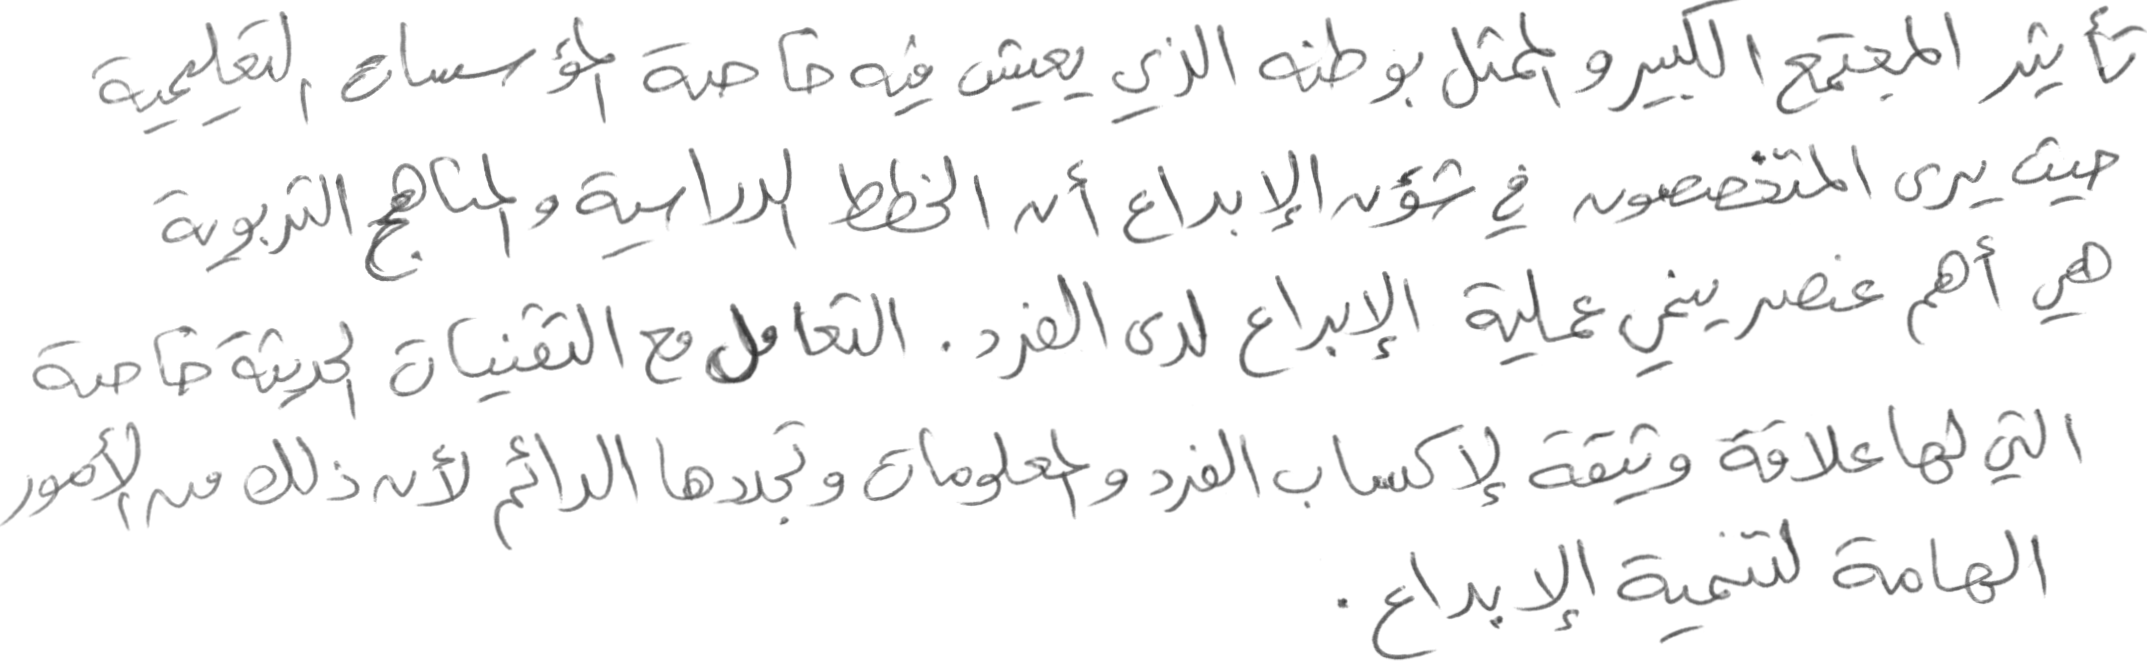 تأثير المجتمع الكبير والمتمثل بوطنه الذي يعيش فيه خاصة المؤسسات التعليمية
حيث يرى المتخصصون في شؤن الإبداع أن الخطط الدراسية والمناهج التربوية
هي أهم عنصر ينمي عملية الإبداع لدى الفرد. التعامل مع التقنيات الحديثة خاصة
التي لها علاقة وثيقة لإكساب الفرد والمعلومات وتجددها الدائم لأن ذلك من الأمور
الهامة لتنمية الإبداع.